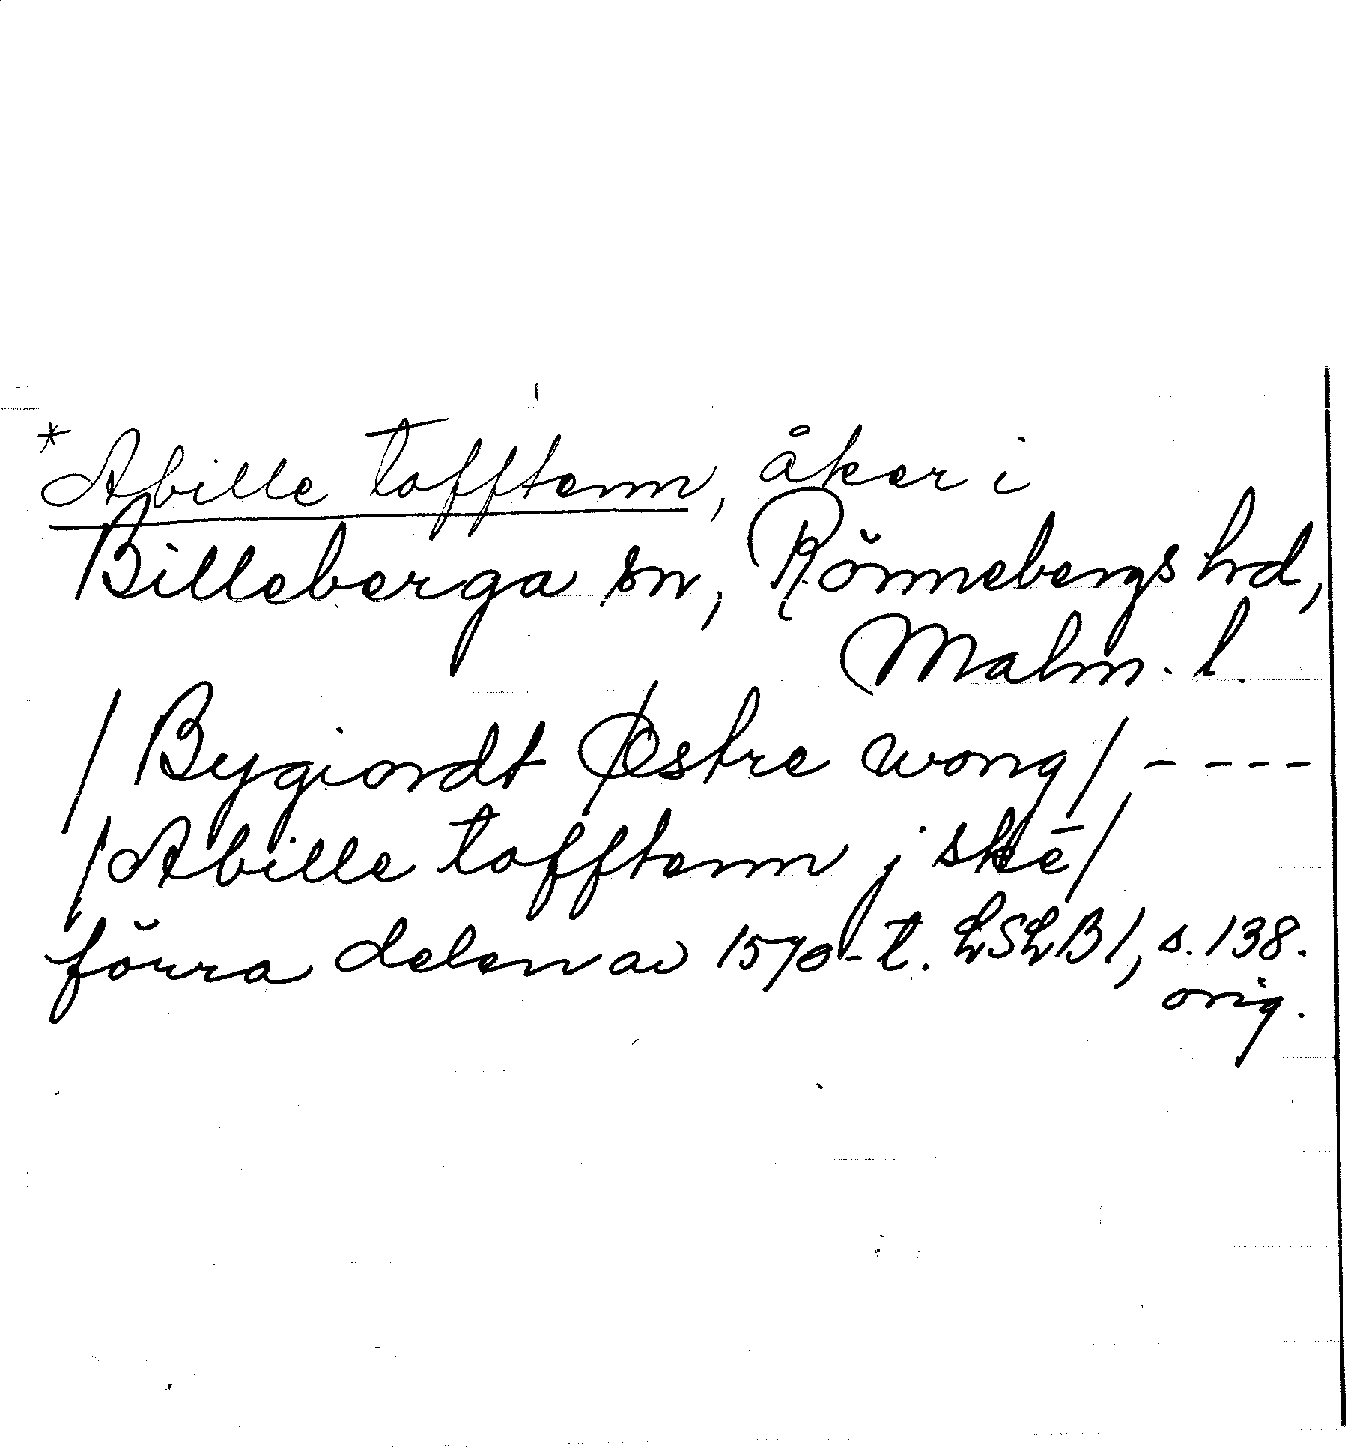 *Abille tofftenn, åker i
Billeberga sn, Rönnebergs hrd,
Malm. l.
/Bygiordt Østre wong/ - - - -
/Abille tofftenn j skē/
förra delen av 1570-t. LSLB1, s. 138.
orig.